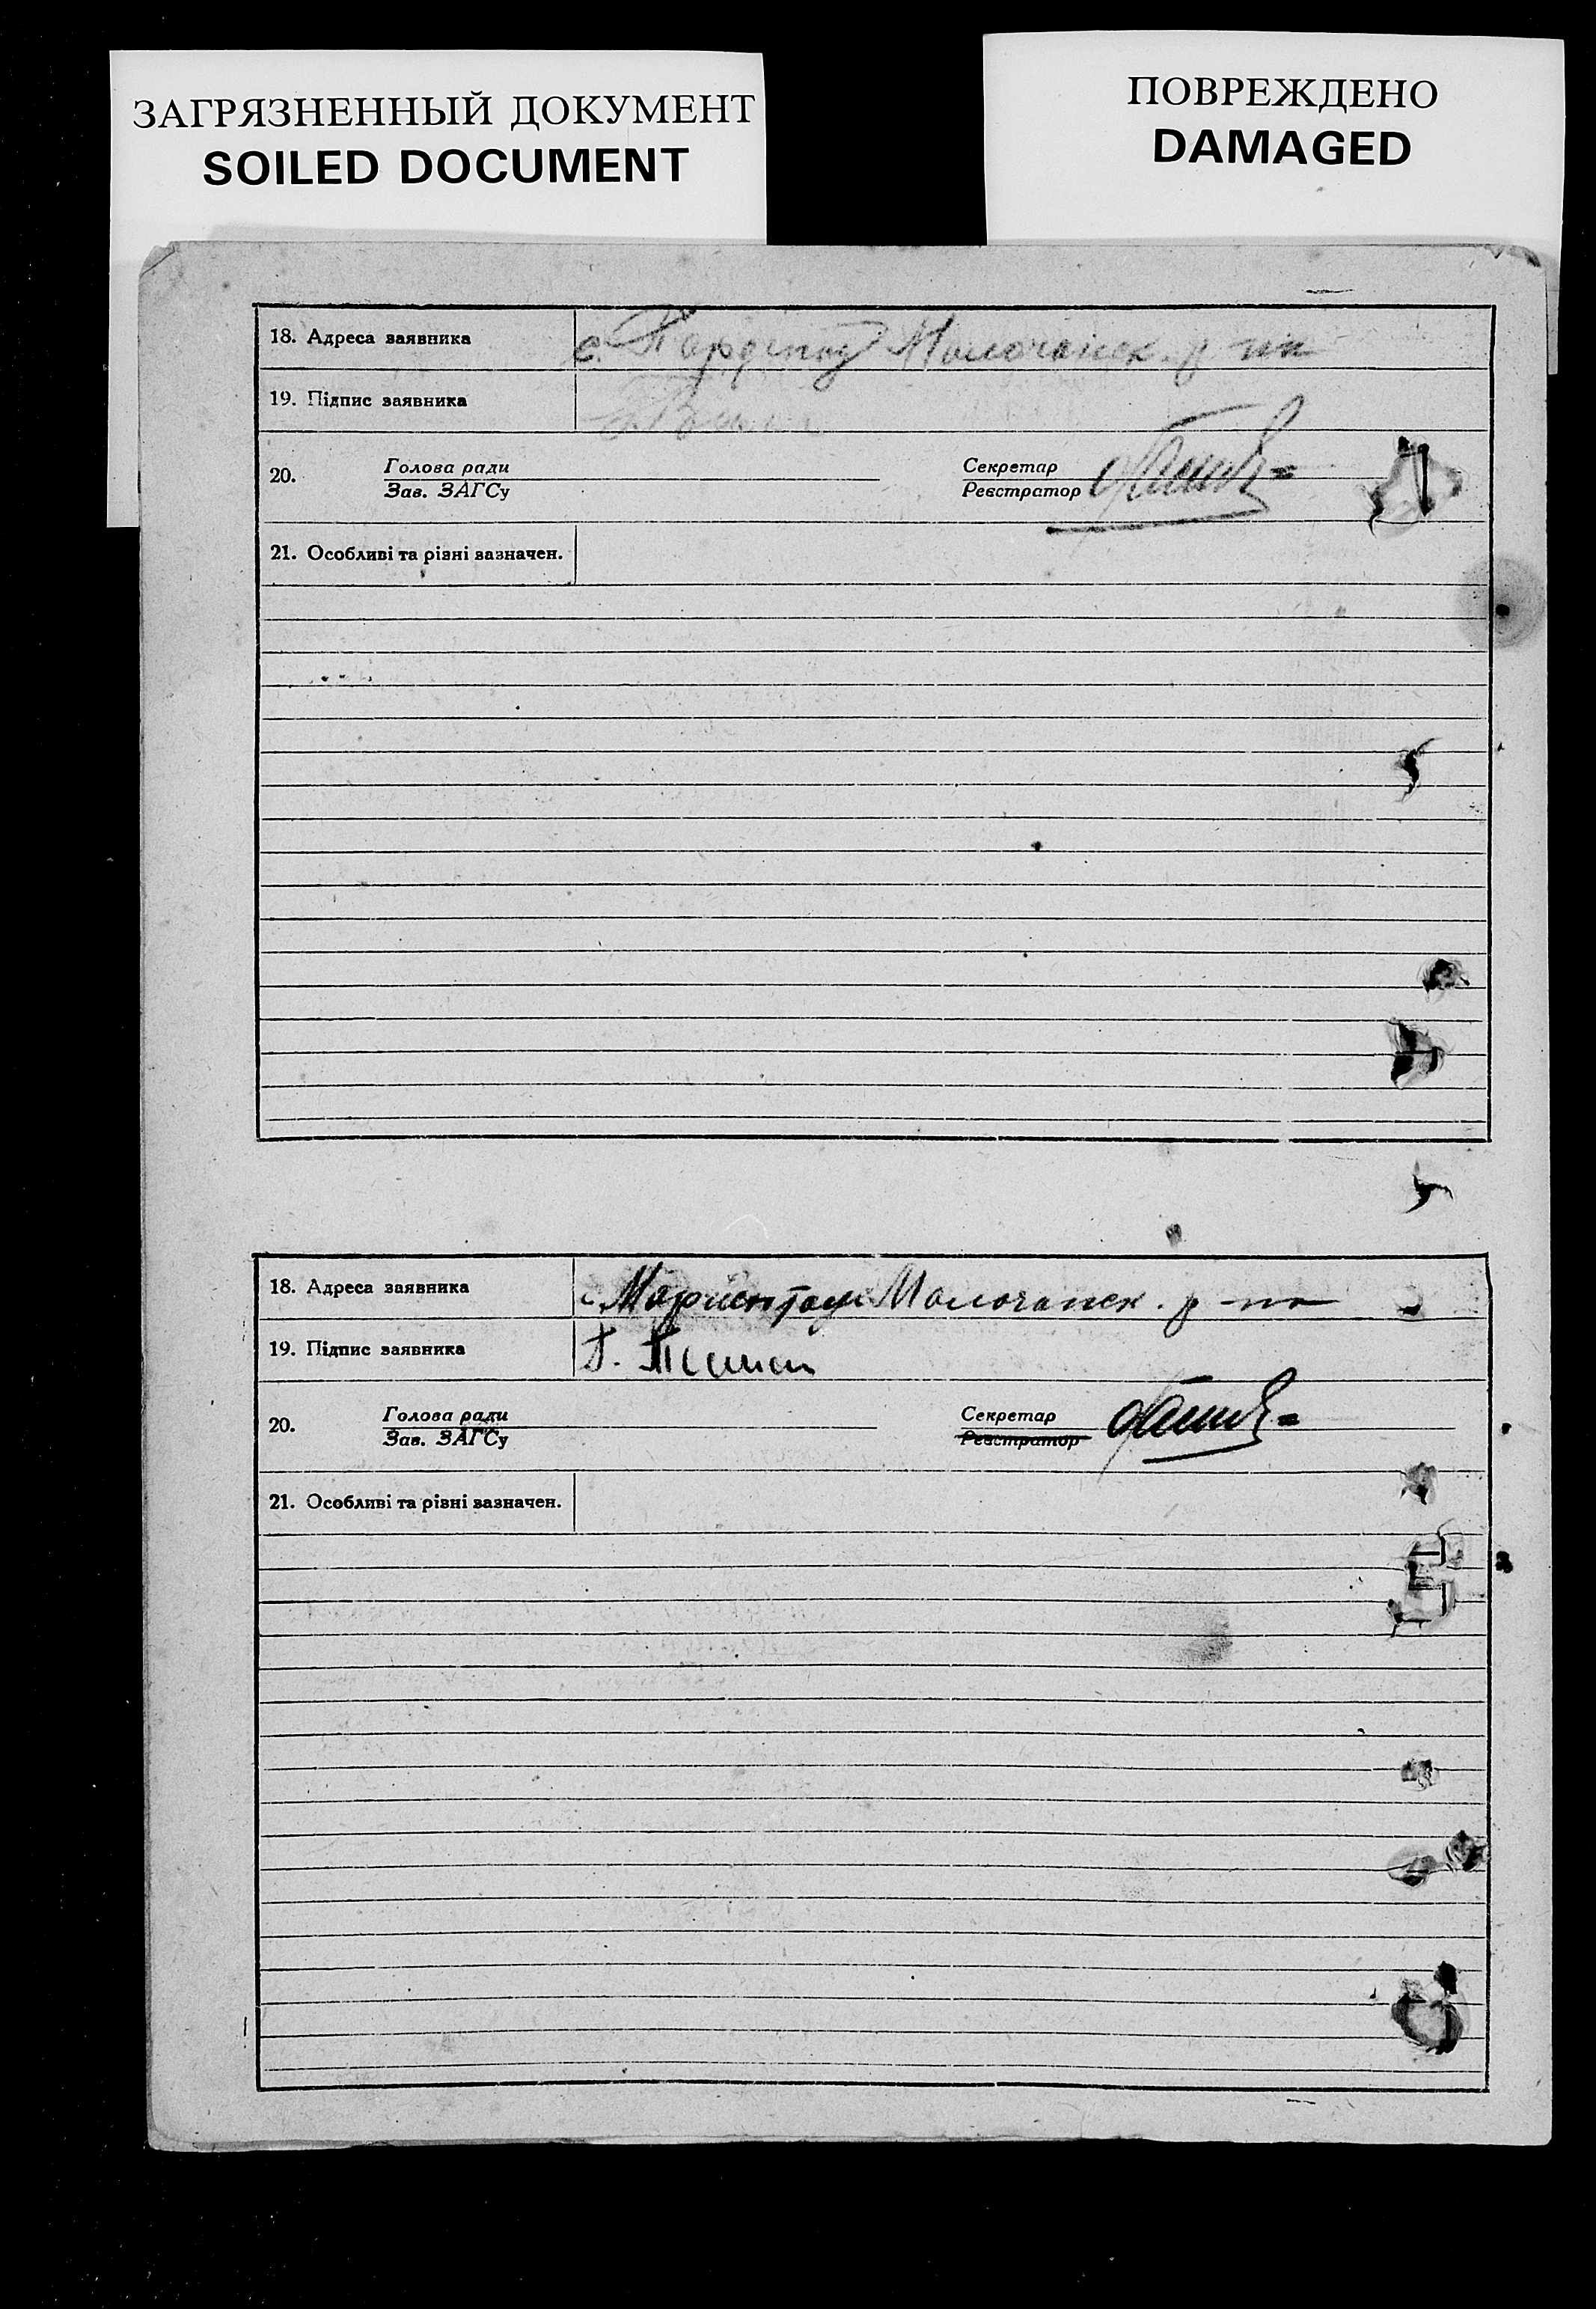 ЗАГРЯЗНЕННЫЙ ДОКУМЕНТ
SOILED DOCUMENT
ПОВРЕЖДЕНО
DAMAGED
18. Адреса заявника с. Молочанск. р-на
19. Підпис заявника
20. Голова ради
Зав. ЗАГСу
Секретар
Реєстратор
21. Особливі та різні зазначен.
18. Адреса заявника с. Мариентау Молочанск. р-на
19. Підпис заявника
20. Голова ради
Зав. ЗАГСу
Секретар
Реєстратор
21. Особливі та різні зазначен.